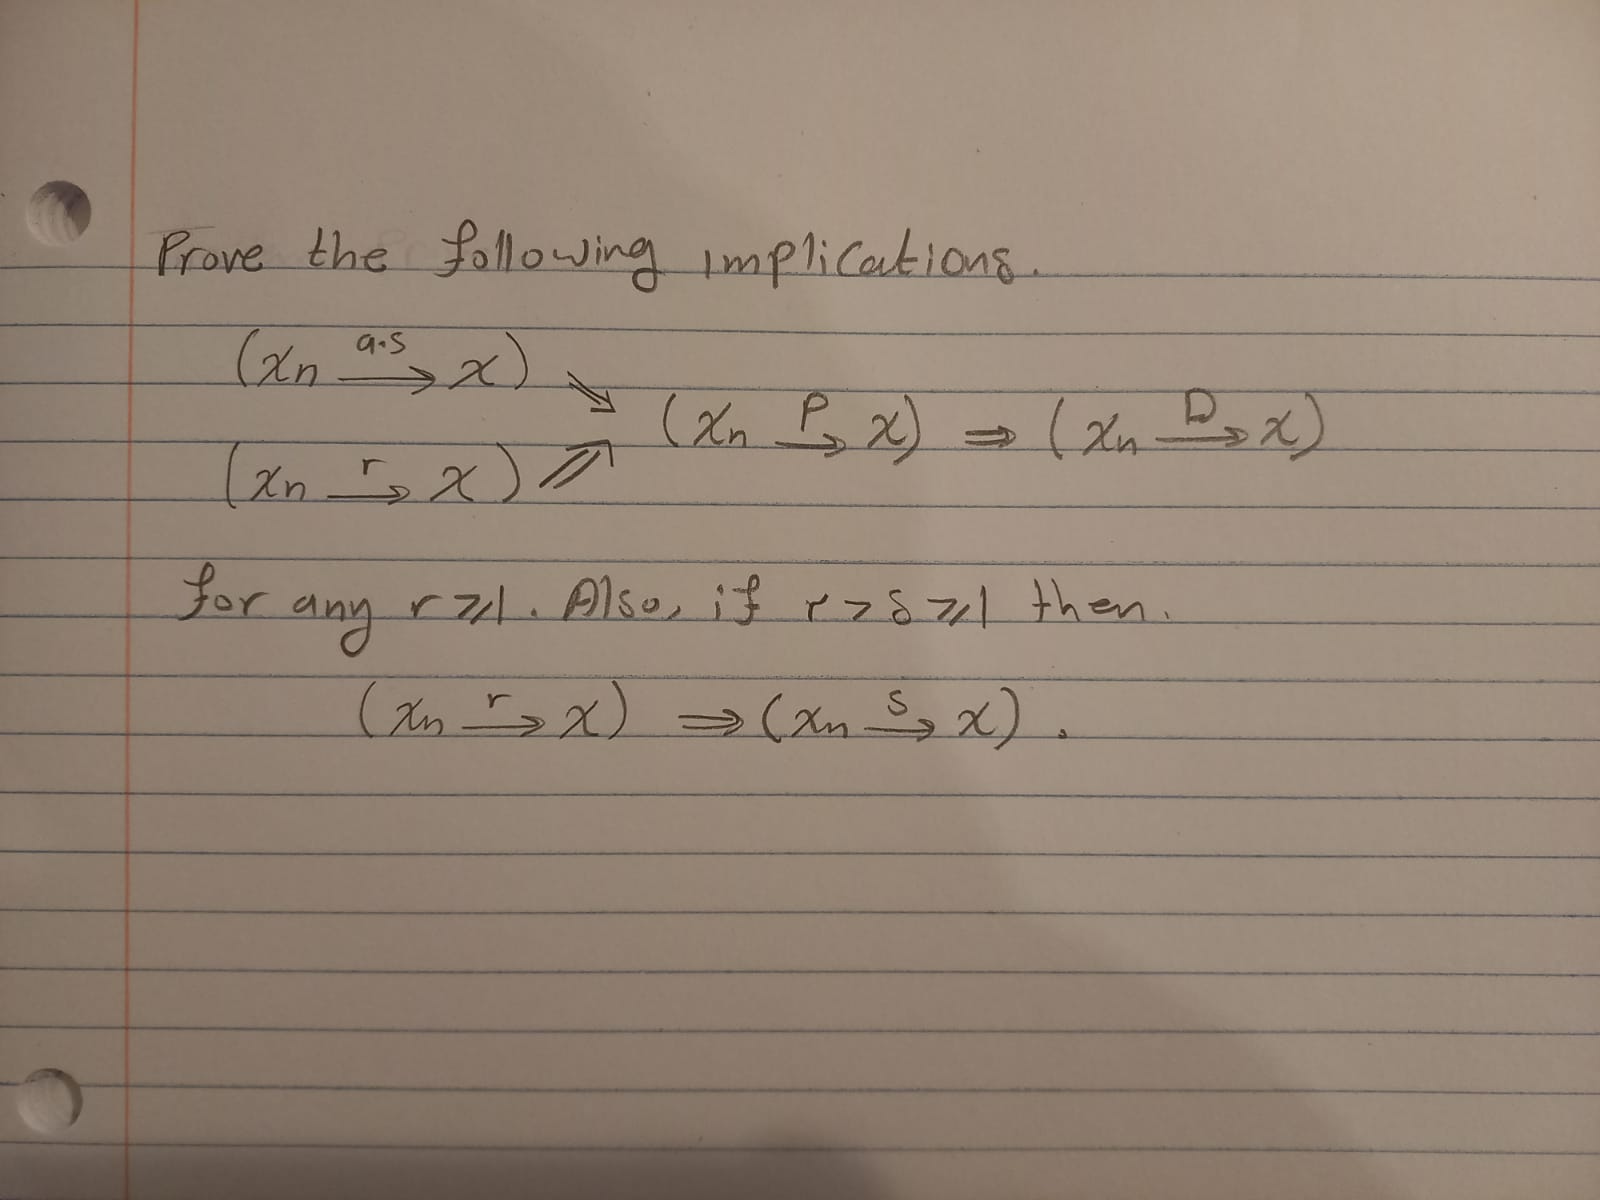 Prove the following implications.
(xn —a.s→ x) ⇘
(xn —P→ x) ⇒ (xn —D→ x)
(xn —r→ x) ⇗
for any r ⩾ 1. Also, if r > s ⩾ 1 then.
(xn —r→ x) ⇒ (xn —s→ x).